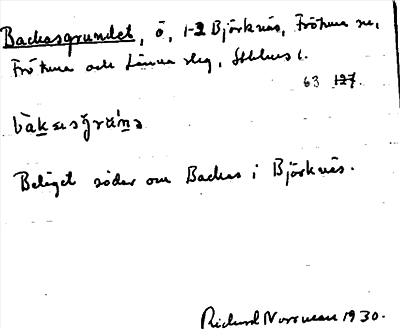 Backasgrundet, ö, 1-2 Björknäs, Frötuna sn,
Frötuna och Länna slg, Sthlms l.
63 127.
Beläget söder om Backas i Björknäs.
Richard Norrman 1930.